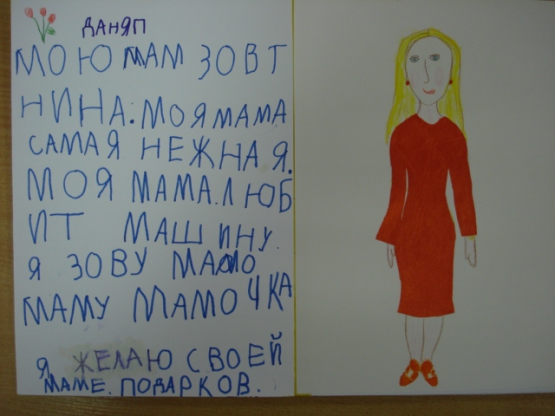 ДАНЯП
МОЮ МАМ ЗОВТ
НИНА. МОЯ МАМА
САМАЯ НЕЖНАЯ.
МОЯ МАМА. ЛЮБ
ИТ МАШИНУ.
Я ЗОВУ МАМО
МАМУ МАМОЧКА
Я ЖЕЛАЮ СВОЕЙ
МАМЕ. ПОДАРКОВ.